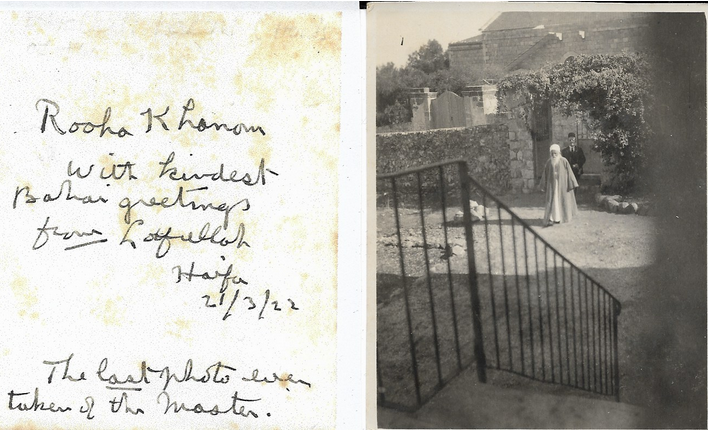 Rooha Khanom
With kindest
Bahai greetings
from Lotfullah
Haifa
21/3/22
The last photo ever
taken of the Master.